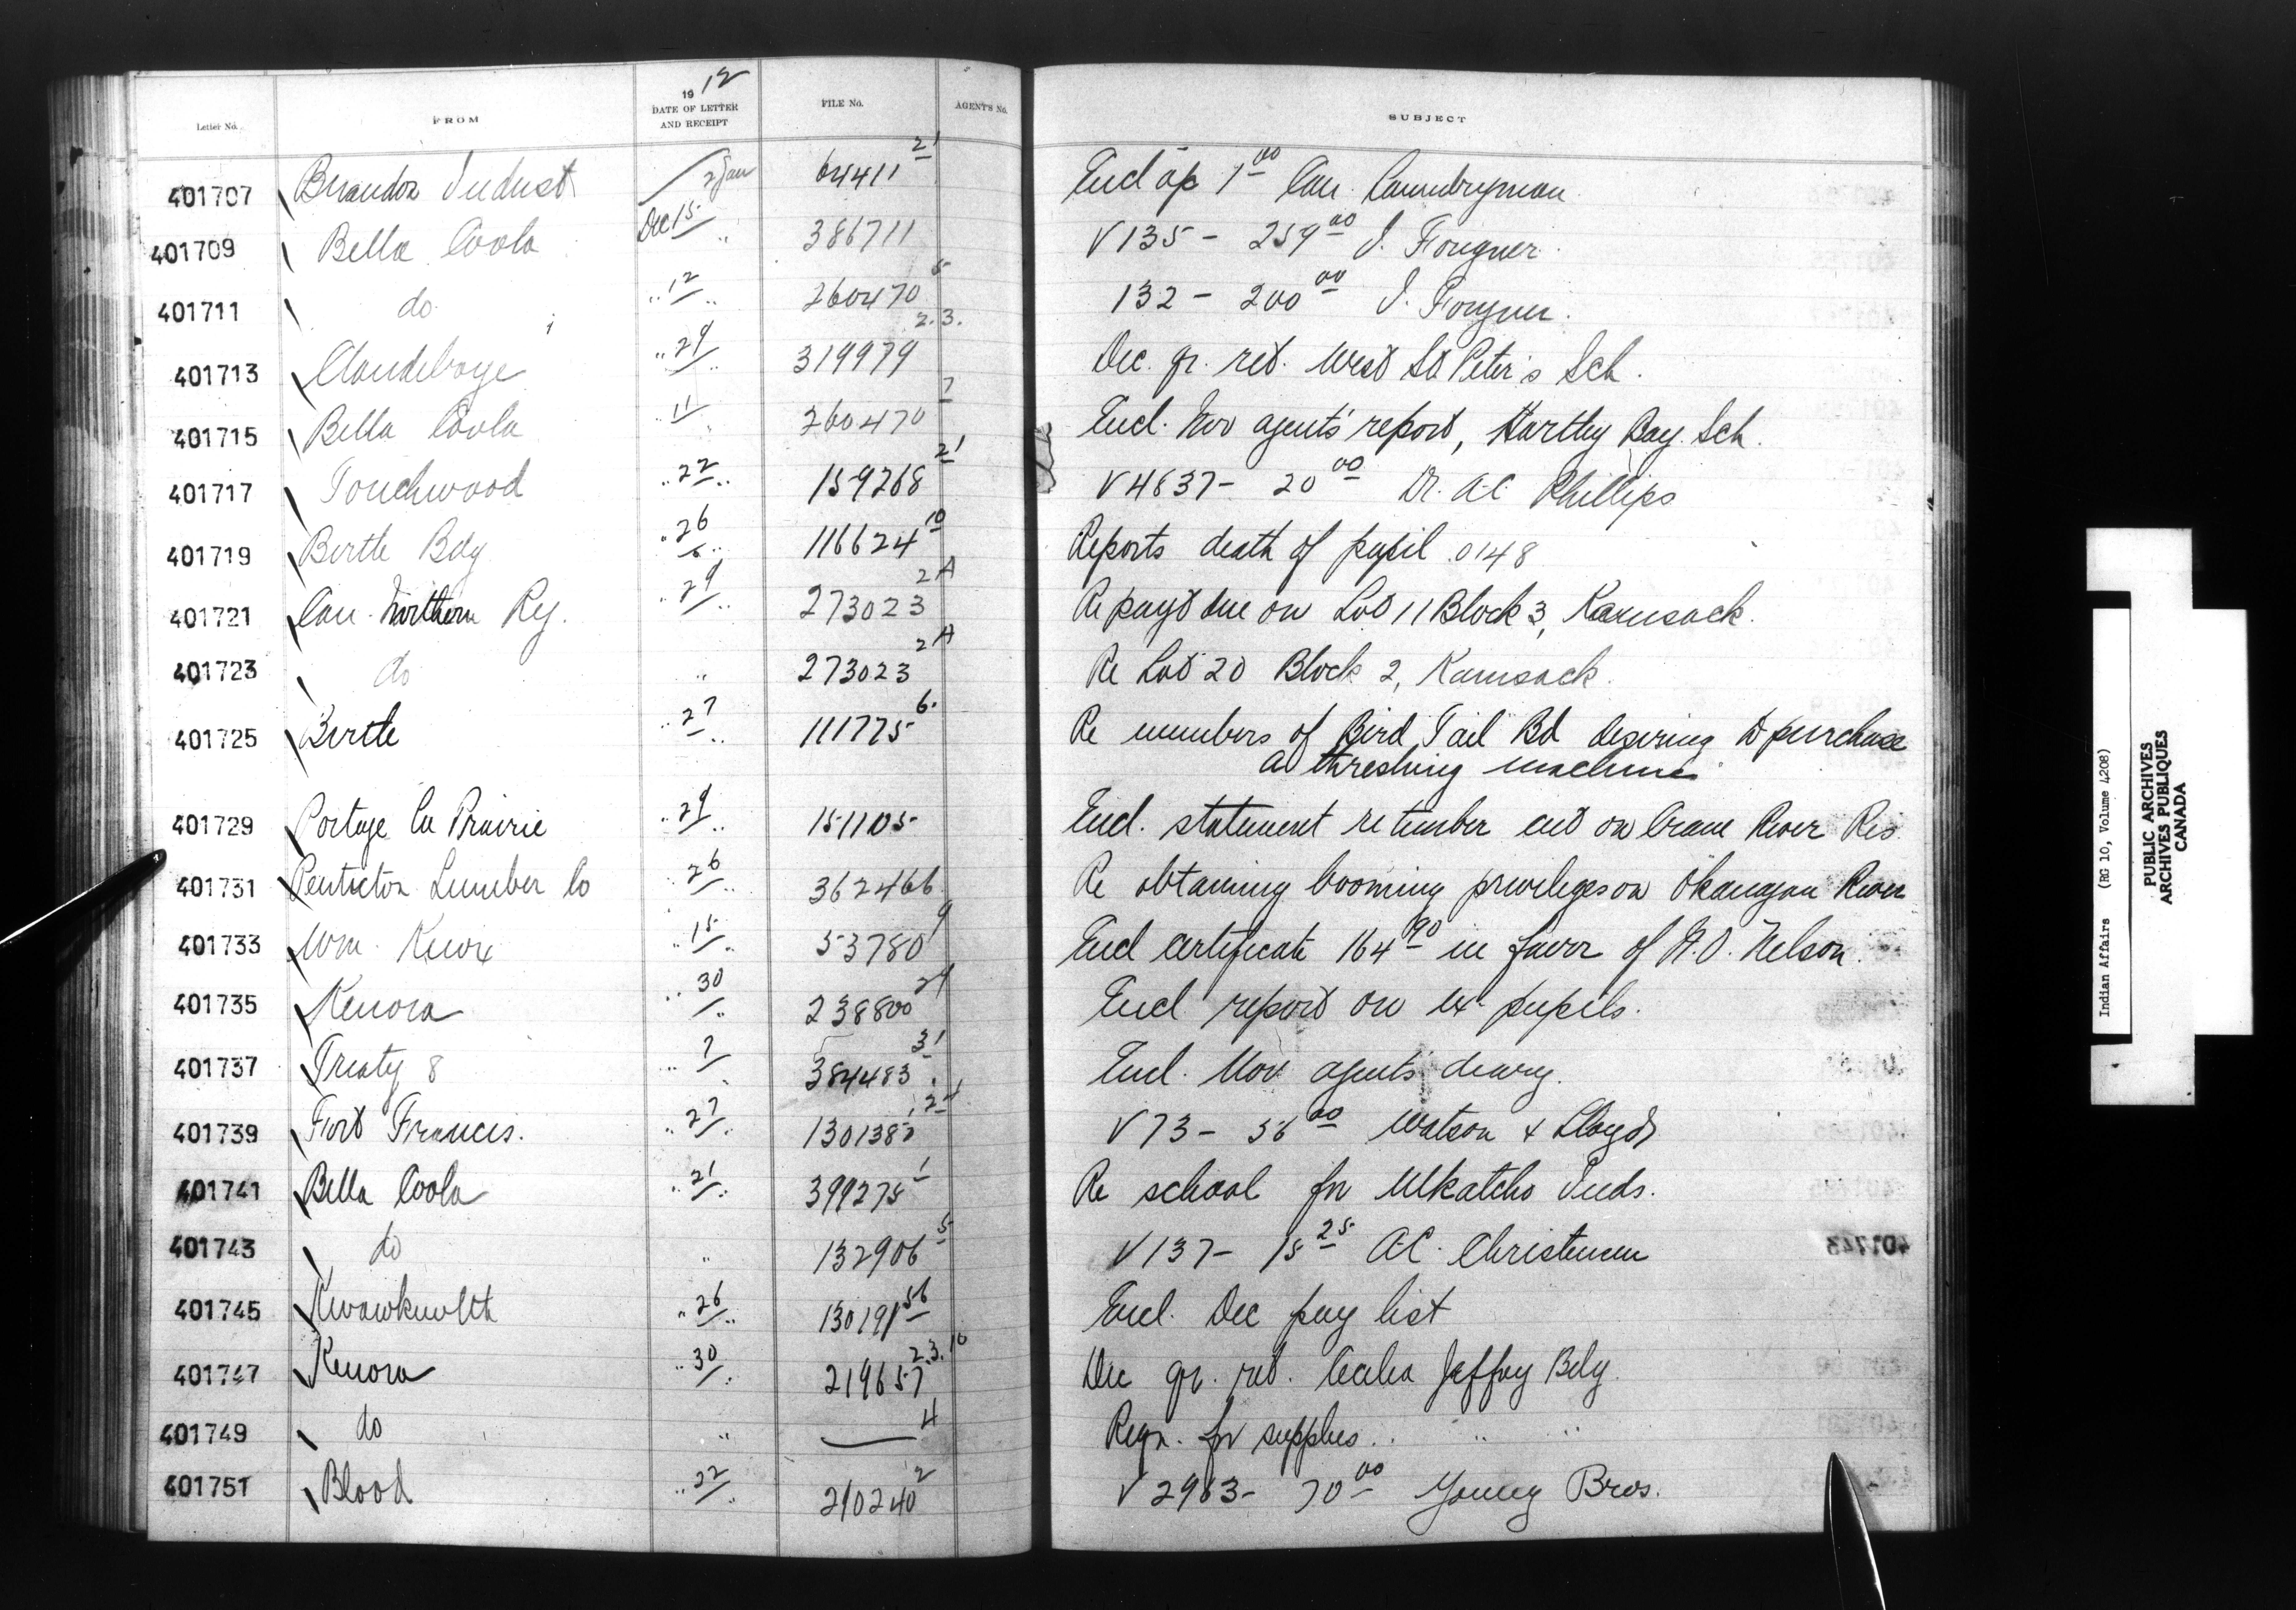 Letter No. FROM 1912 DATE OF LETTER AND RECEIPT FILE No. AGENT'S No. SUBJECT
401707 Brandon Indust 2 Jan 64411 21 Encl ap 1 00 Can. Laundryman
401709 Bella Coola Dec 15 " 386711 V 135 - 259 00 I. Fougner
401711 do " 12 " 260470 5 132 - 200 00 I. Fougner.
401713 Clandeboye " 29 " 319979 2.3. Dec. qr. ret. West St Peter's Sch.
401715 Bella Coola " 11 260470 7 Encl. Nov agents' report, Hartley Bay Sch.
401717 Touchwood " 22 " 159268 21 V 4637 - 20 00 Dr. A.C. Phillips
401719 Birtle Bdg " 26 " 116624 10 Reports death of pupil 0148
401721 Can. Northern Ry. " 29 " 273023 2A Re payt due on Lot 11 Block 3, Kamsack.
401723 do " 273023 2A Re Lot 20 Block 2, Kamsack.
401725 Birtle " 27 " 111775 6. Re members of Bird Tail Bd desiring to purchase
a threshing machine
401729 Portage La Prairie " 29 " 151105 Encl. statement re timber cut on Crane River Res.
401731 Penticton Lumber Co " 26 " 362466 Re obtaining booming privileges on Okanagan River
401733 Wm. Knox " 15 " 53780 9 Encl certificate 164 90 in favor of N.O. Nelson.
401735 Kenora " 30 " 238800 24 Encl report on ex-pupils.
401737 Treaty 8 " 7 " 384483 31 Encl. Nov agents' diary.
401739 Fort Francis. " 27 " 130138 V 73 - 56 00 Watson & Lloyd
401741 Bella Coola " 21 " 399275 1 Re school for Ulkatcho Inds.
401743 do " 132906 5 V 137 - 15 25 A.C. Christensen
401745 Kwawkewlth " 26 " 130191 56 Encl. Dec pay list
401747 Kenora " 30 " 219657 2.3.10 Dec qr. ret. Cecilia Jeffrey Bdg.
401749 do " — 4 Reqn. for supplies. " "
401751 Blood " 22 " 210240 2 V 2963 - 70 00 Young Bros.
Indian Affairs (RG 10, Volume 4208)
PUBLIC ARCHIVES
ARCHIVES PUBLIQUES
CANADA